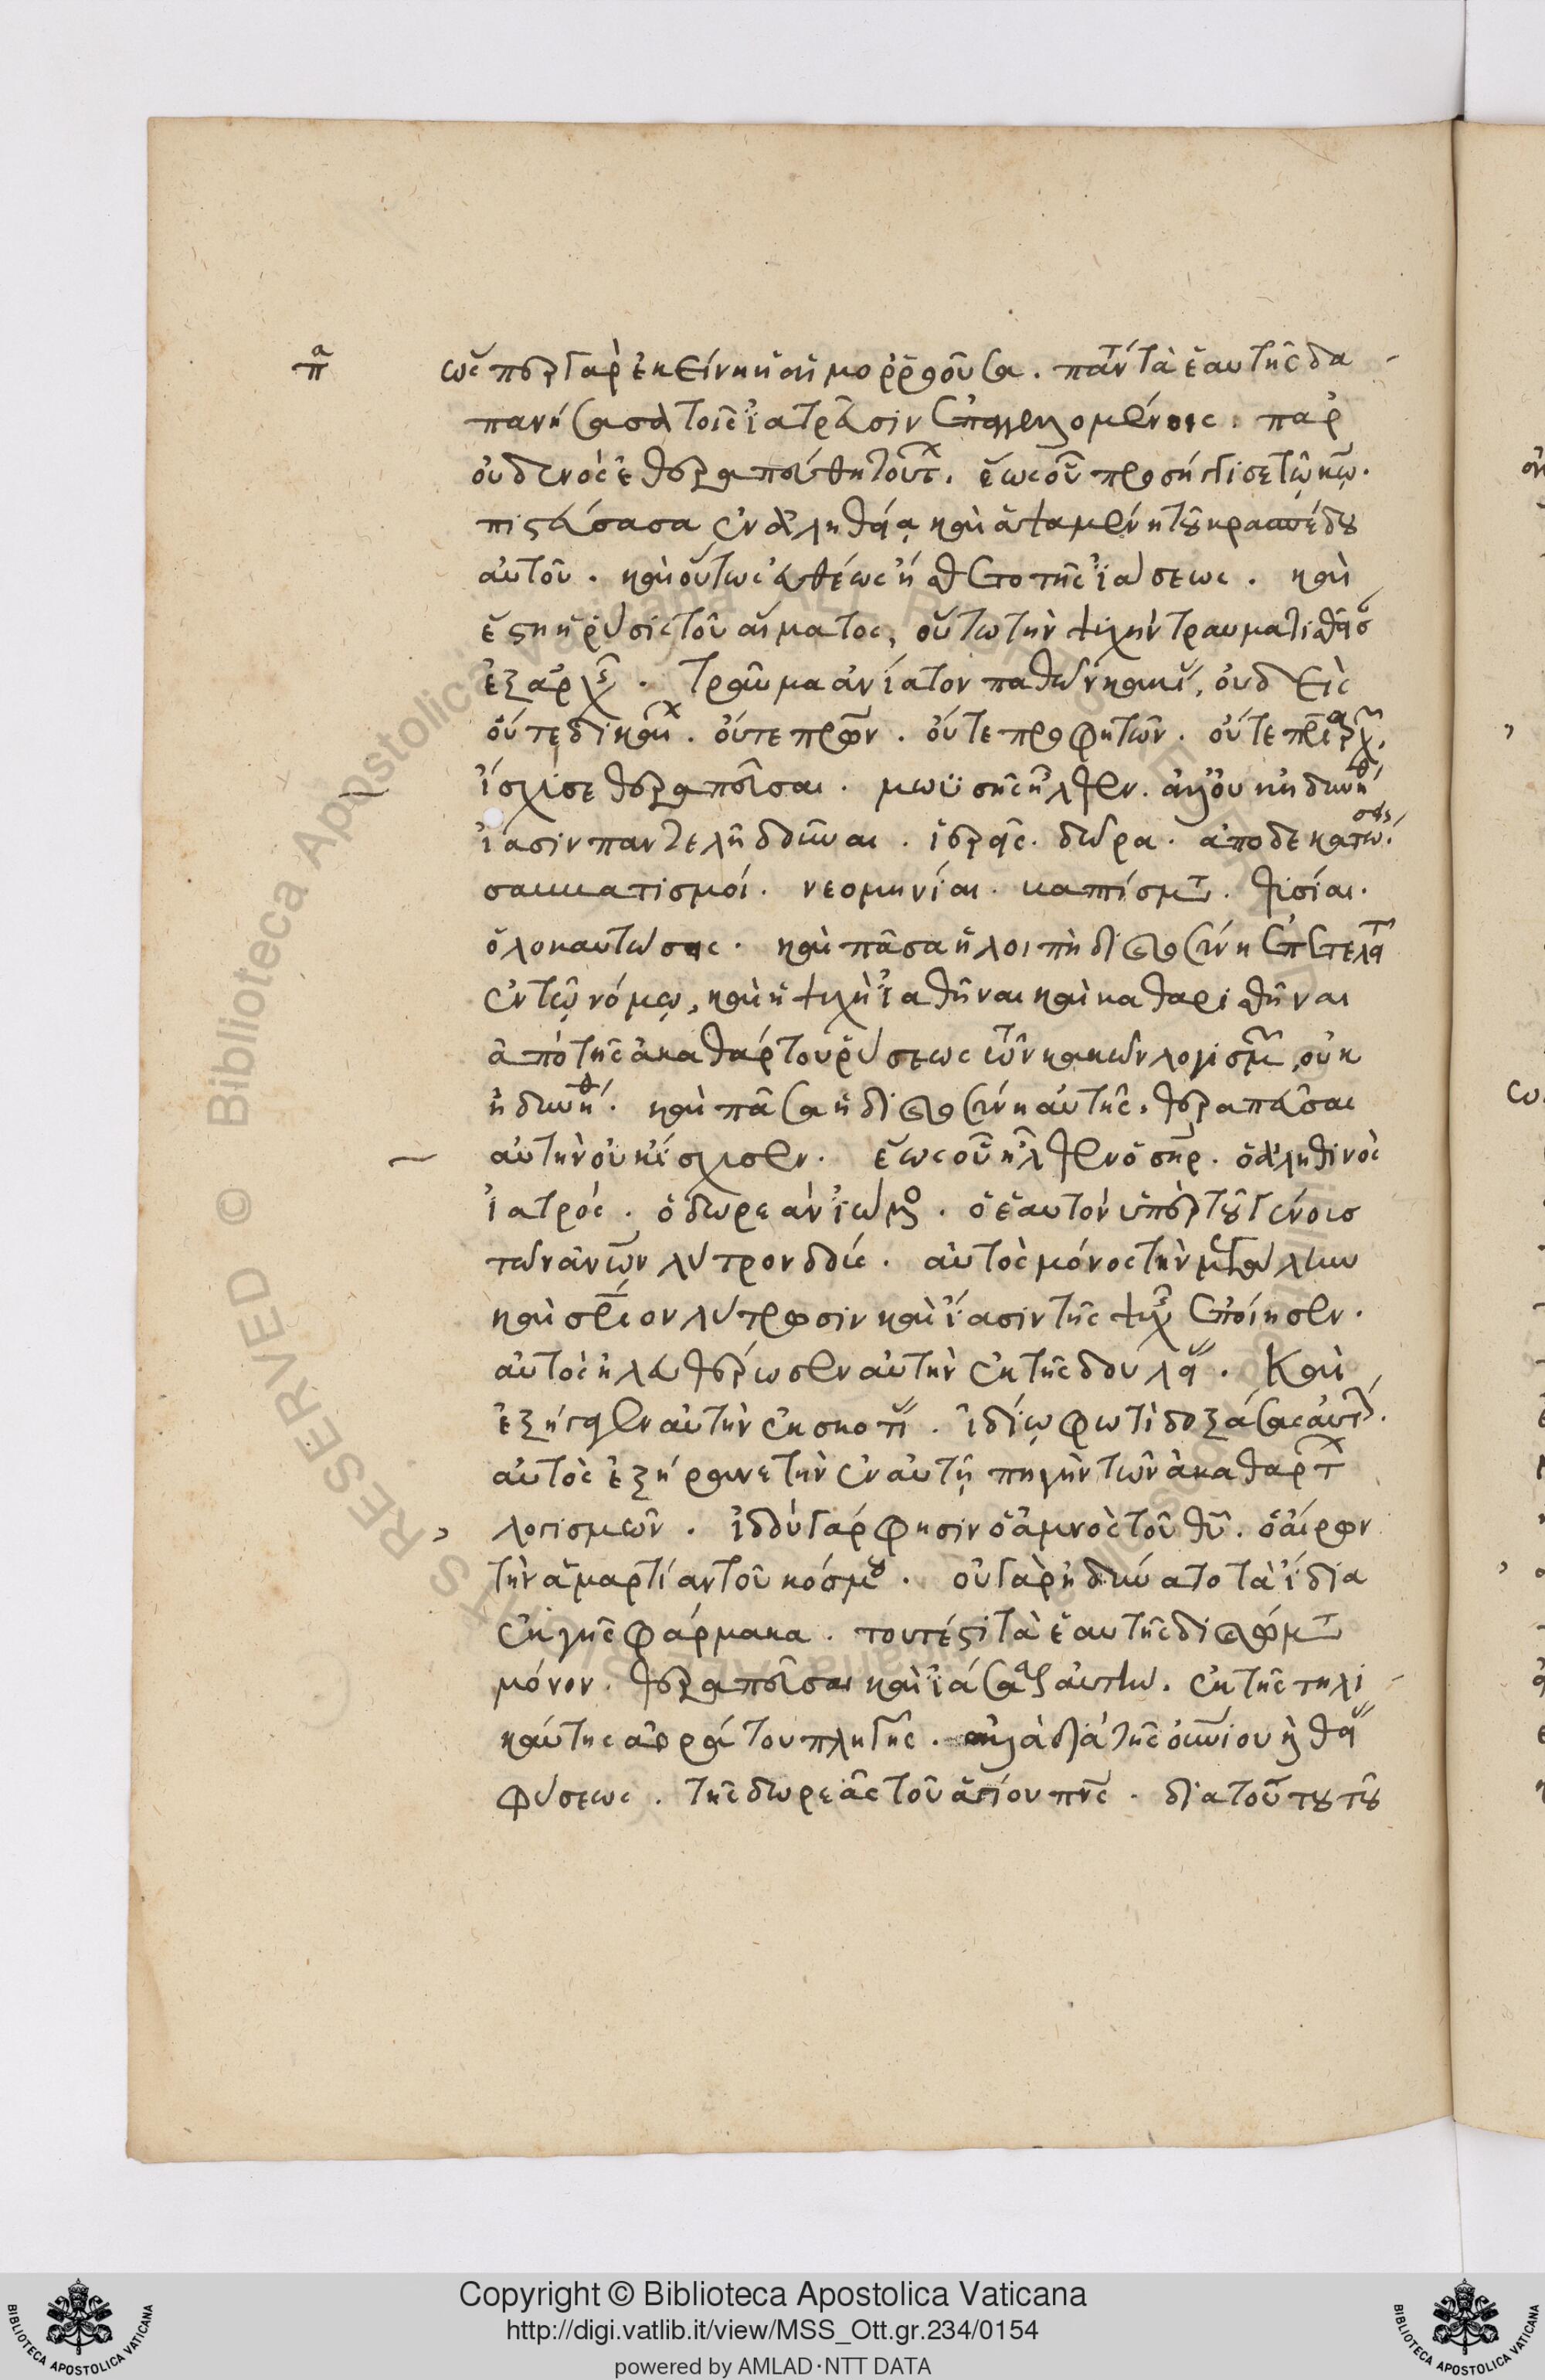 πα
ὥσπερ γὰρ ἐκείνη ἡ αἱμορροοῦσα. πάντα τὰ ἑαυτῆς δα-
πανήσασα τοῖς ἰατρεύσιν ἐπαγγελλομένοις. παρ'
οὐδενὸς ἐθεραπεύθη τούτων. ἕως οὗ προσήγγισε τῷ κῷ.
πιστεύσασα ἐν ἀληθείᾳ καὶ ἁψαμένη τοῦ κρασπέδου
αὐτοῦ. καὶ οὕτως εὐθέως ᾔσθετο τῆς ἰάσεως. καὶ
ἔστη ἡ ῥύσις τοῦ αἵματος, οὕτω τὴν ψυχὴν τραυματισθεῖσαν
ἐξ ἀρχῆς. τραῦμα ἀνίατον παθῶν κακίας, οὐδεὶς
οὔτε δικαίων. οὔτε πρων. οὔτε προφητῶν. οὔτε πριαρχῶν.
ἴσχυσε θεραπεῦσαι. μωϋσῆς ἦλθεν. ἀλλ' οὐκ ἠδυνήθη
ἴασιν παντελῆ δοῦναι. ἱερεῖς. δῶρα. ἀποδεκατώσεις.
σαββατισμοί. νεομηνίαι. βαπτίσματα. θυσίαι.
ὁλοκαυτώσεις. καὶ πᾶσα ἡ λοιπὴ δικαιοσύνη ἐπετελεῖτο
ἐν τῷ νόμῳ, καὶ ἡ ψυχὴ ἰαθῆναι καὶ καθαρισθῆναι
ἀπὸ τῆς ἀκαθάρτου ῥύσεως τῶν κακῶν λογισμῶν, οὐκ
ἠδυνήθη. καὶ πᾶσα ἡ δικαιοσύνη αὐτῆς, θεραπεῦσαι
αὐτὴν οὐκ ἴσχυσεν. ἕως οὗ ἦλθεν ὁ σηρ. ὁ ἀληθινὸς
ἰατρός. ὁ δωρεὰν ἰώμενος. ὁ ἑαυτὸν ὑπὲρ τοῦ γένους
τῶν ἀνων λύτρον δούς. αὐτὸς μόνος τὴν μεγάλην
καὶ σριον λύτρωσιν καὶ ἴασιν τῆς ψυχῆς ἐποίησεν.
αὐτὸς ἠλευθέρωσεν αὐτὴν ἐκ τῆς δουλείας. καὶ
ἐξήγαγεν αὐτὴν ἐκ σκοτίας. ἰδίῳ φωτὶ δοξάσας αὐτήν.
αὐτὸς ἐξήρανε τὴν ἐν αὐτῇ πηγὴν τῶν ἀκαθάρτων
λογισμῶν. ἰδοὺ γάρ φησιν ὁ ἀμνὸς τοῦ θυ. ὁ αἴρων
τὴν ἁμαρτίαν τοῦ κόσμου. οὐ γὰρ ἠδύνατο τὰ ἴδια
ἐκ γῆς φάρμακα. τουτέστι τὰ ἑαυτῆς δικαιώματα
μόνον. θεραπεῦσαι καὶ ἰάσασθαι αὐτὴν. ἐκ τῆς τηλι-
καύτης ἀοράτου πληγῆς. ἀλλὰ διὰ τῆς οὐνίου καὶ θείας
φύσεως. τῆς δωρεᾶς τοῦ ἁγίου πνς. διὰ τούτου τοῦ
Copyright © Biblioteca Apostolica Vaticana
http://digi.vatlib.it/view/MSS_Ott.gr.234/0154
powered by AMLAD·NTT DATA